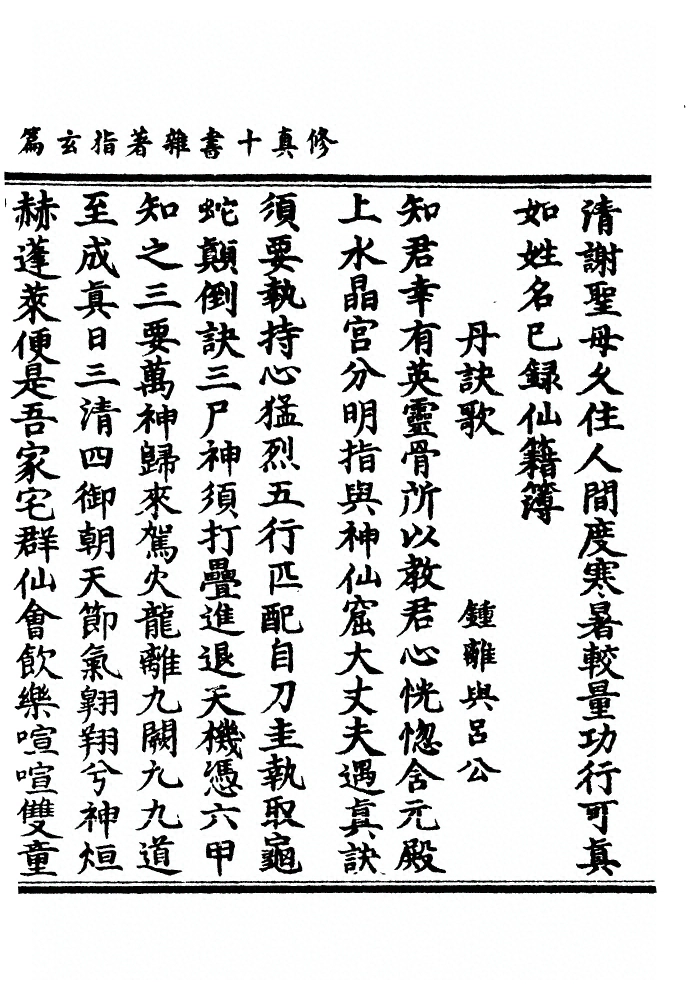 修真十書雜著指玄篇
清謝聖母久住人間度寒暑較量功行可真
如姓名已録仙籍簿
丹訣歌 鍾離與呂公
知君幸有英靈骨所以教君心恍惚含元殿
上水晶宮分明指與神仙窟大丈夫遇真訣
須要執持心猛烈五行匹配自刀圭執取龜
蛇顛倒訣三尸神須打疊進退天機憑六甲
知之三要萬神歸來駕火龍離九闕九九道
至成真日三清四御朝天節氣翱翔兮神烜
赫蓬萊便是吾家宅群仙會飲樂喧喧雙童